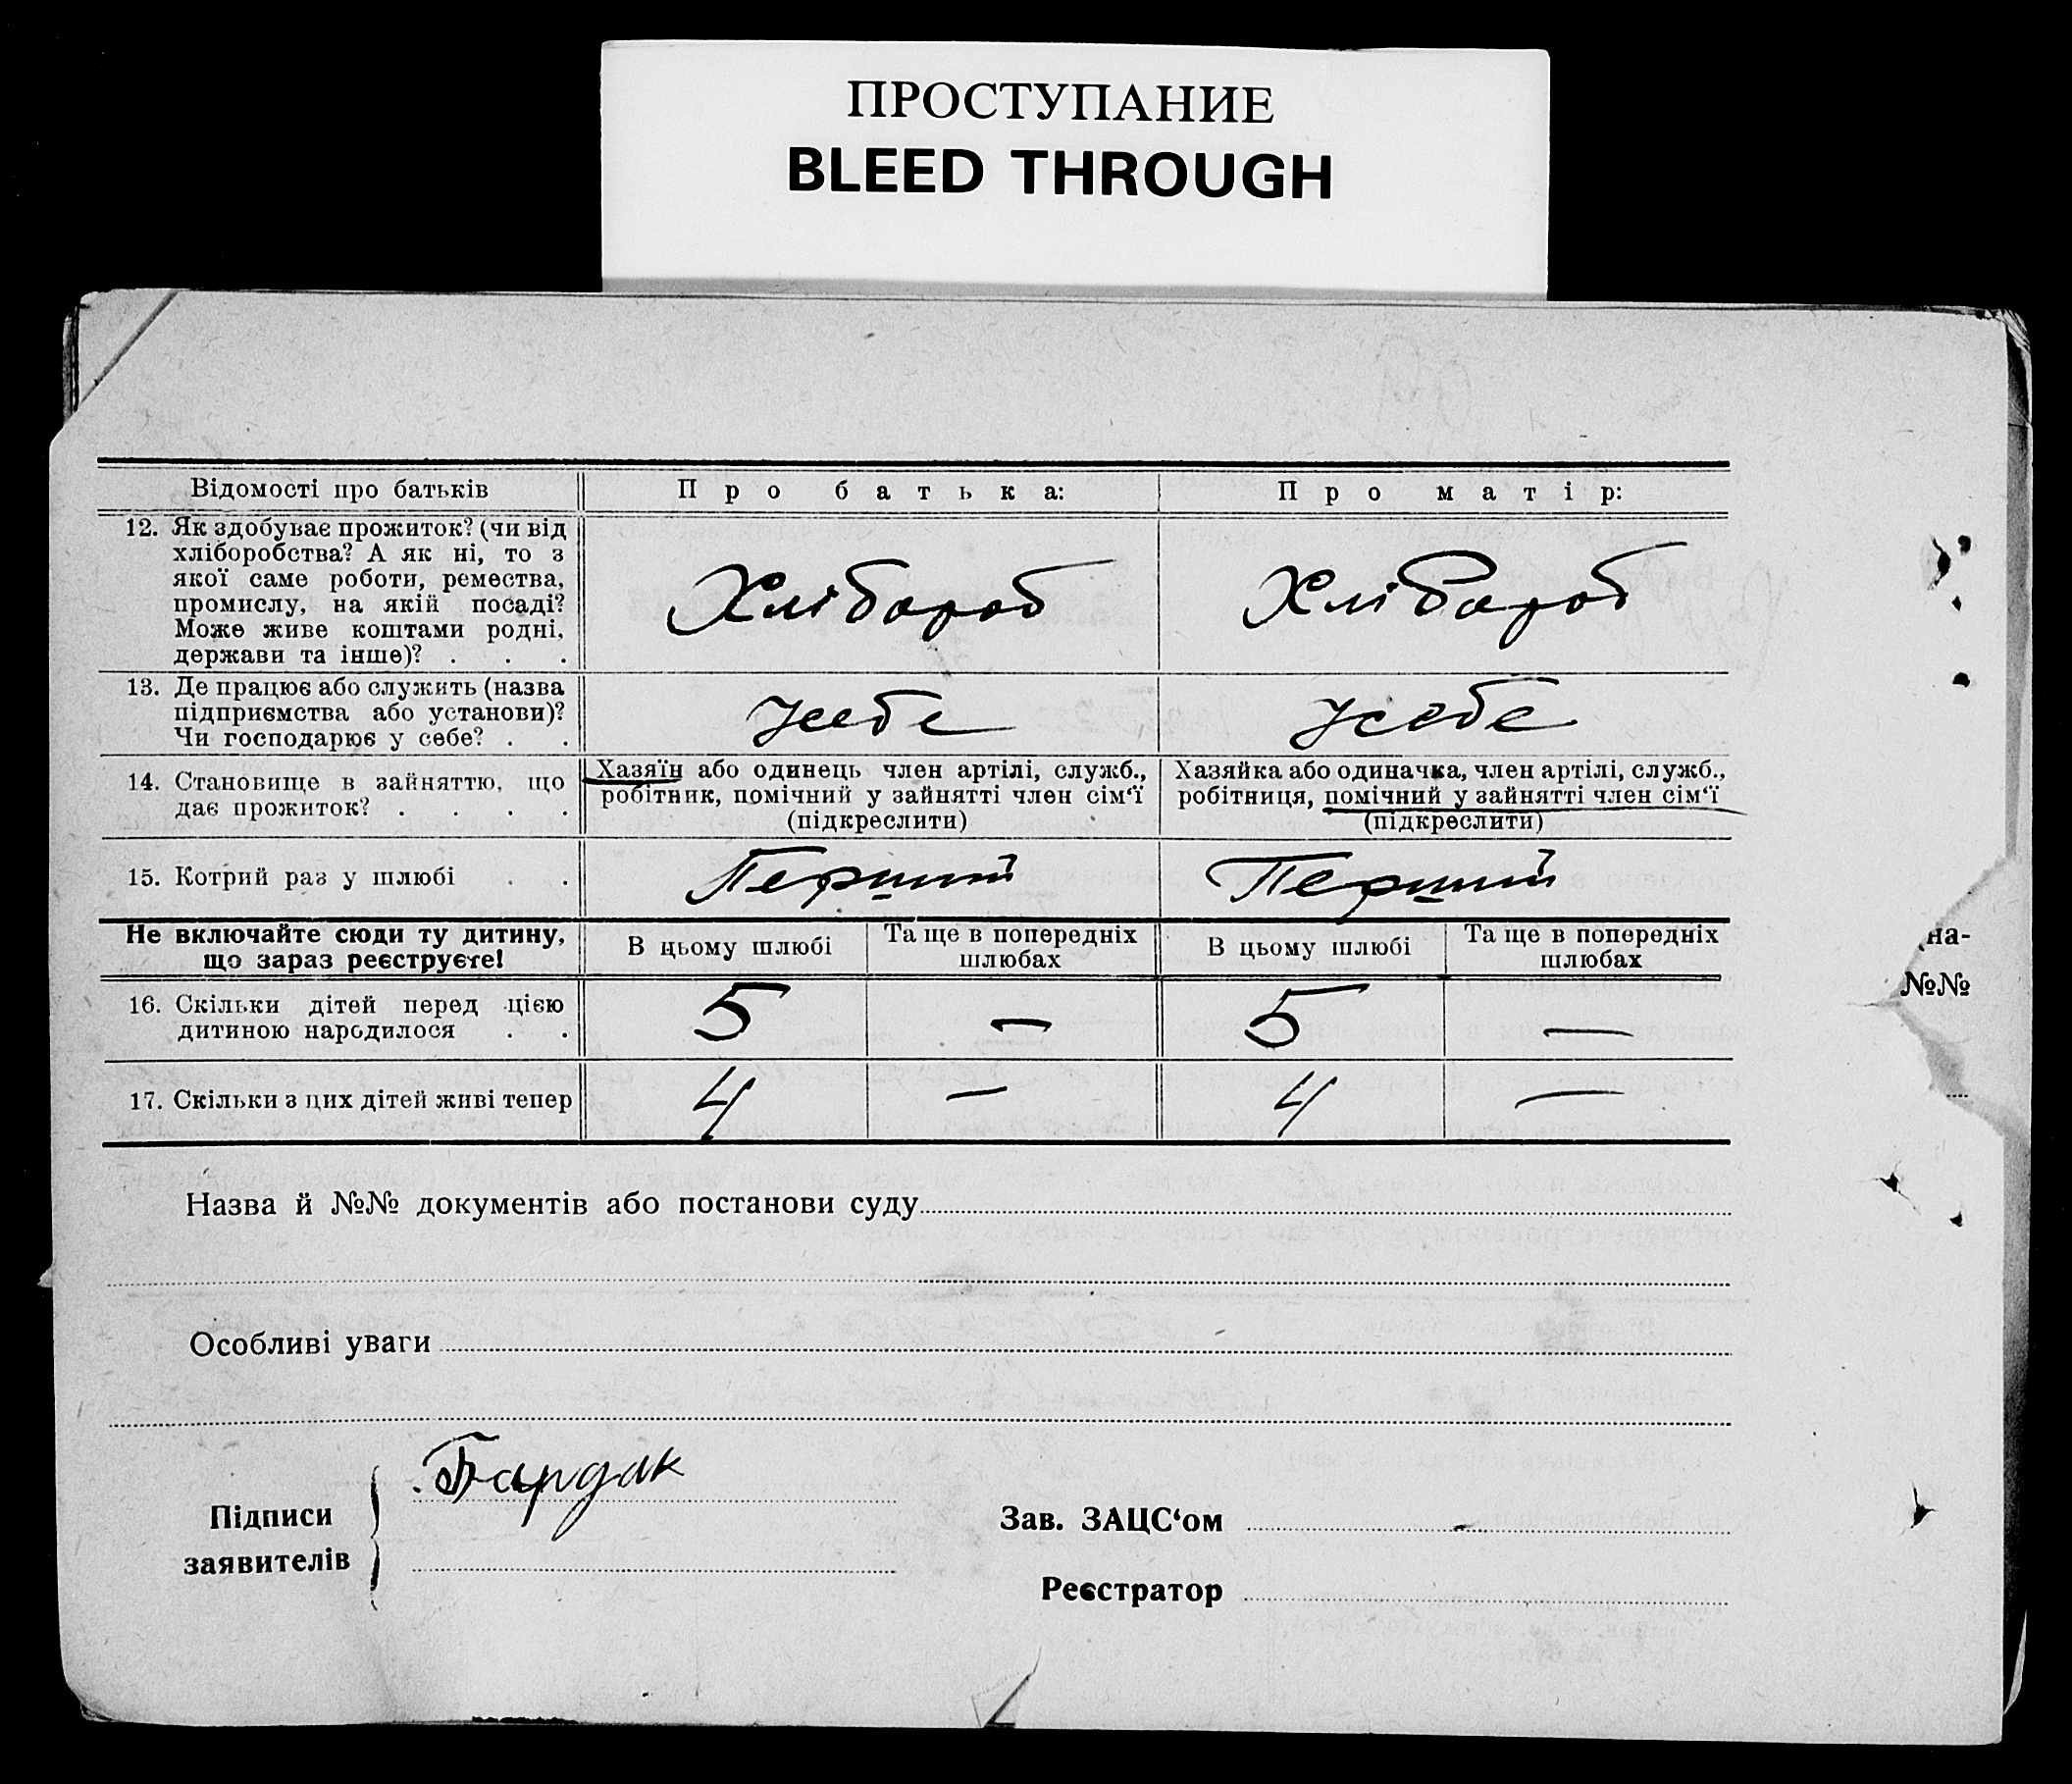 ПРОСТУПАНИЕ
BLEED THROUGH
Відомості про батьків
Про батька:
Про матір:
12. Як здобуває прожиток? (чи від
хліборобства? А як ні, то з
якої саме роботи, ремества,
промислу, на якій посаді?
Може живе коштами родні,
держави та інше)? . . .
Хлібороб
Хлібороб
13. Де працює або служить (назва
підприємства або установи)?
Чи господарює у себе? . .
Усебе
Усебе
14. Становище в зайняттю, що
дає прожиток? . . . .
Хазяїн або одинець член артілі, служб.,
робітник, помічний у зайнятті член сім‘ї
(підкреслити)
Хазяйка або одиначка, член артілі, служб.,
робітниця, помічний у зайнятті член сім‘ї
(підкреслити)
15. Котрий раз у шлюбі . .
Перший
Перший
Не включайте сюди ту дитину,
що зараз реєструєте!
В цьому шлюбі
Та ще в попередніх
шлюбах
В цьому шлюбі
Та ще в попередніх
шлюбах
16. Скільки дітей перед цією
дитиною народилося . .
5
—
5
—
17. Скільки з цих дітей живі тепер
4
—
4
—
на-
№№
Назва й №№ документів або постанови суду
Особливі уваги
Підписи
заявителів
Бардак
Зав. ЗАЦС‘ом
Реєстратор